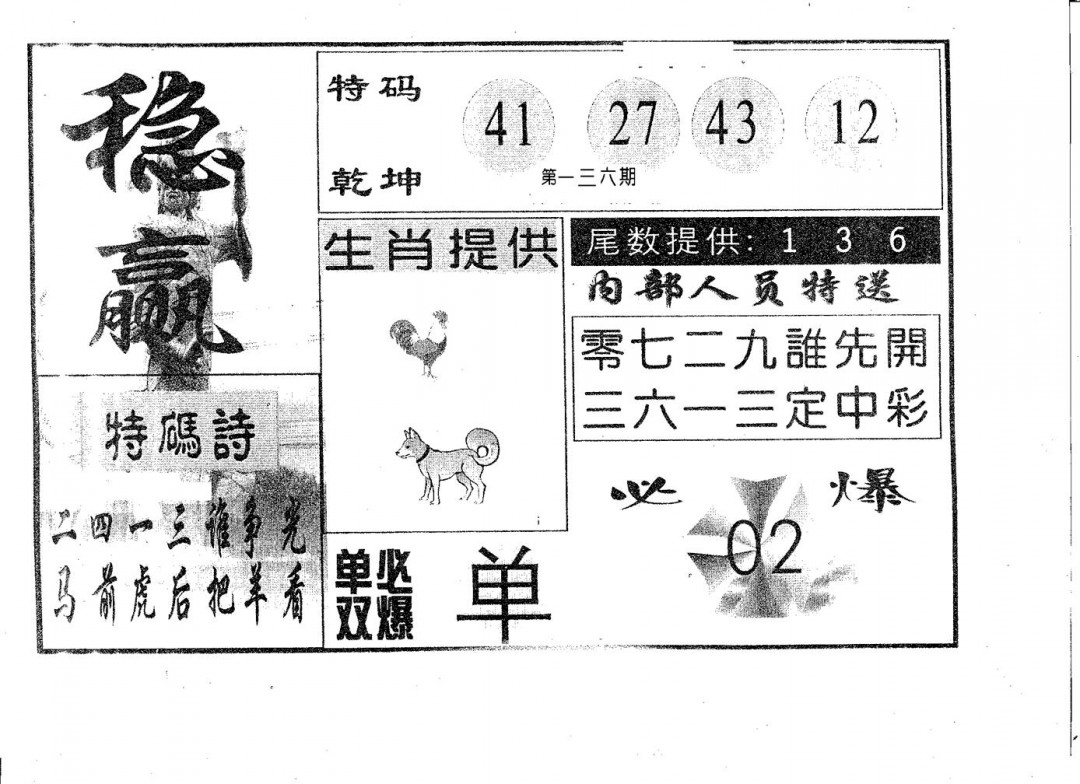 稳
赢
特码
乾坤
41 27 43 12
第一三六期
生肖提供
尾数提供: 1 3 6
内部人员特送
零七二九誰先開
三六一三定中彩
特碼詩
二四一三谁争光
马前虎后把羊看
必爆
02
单双
必爆
单